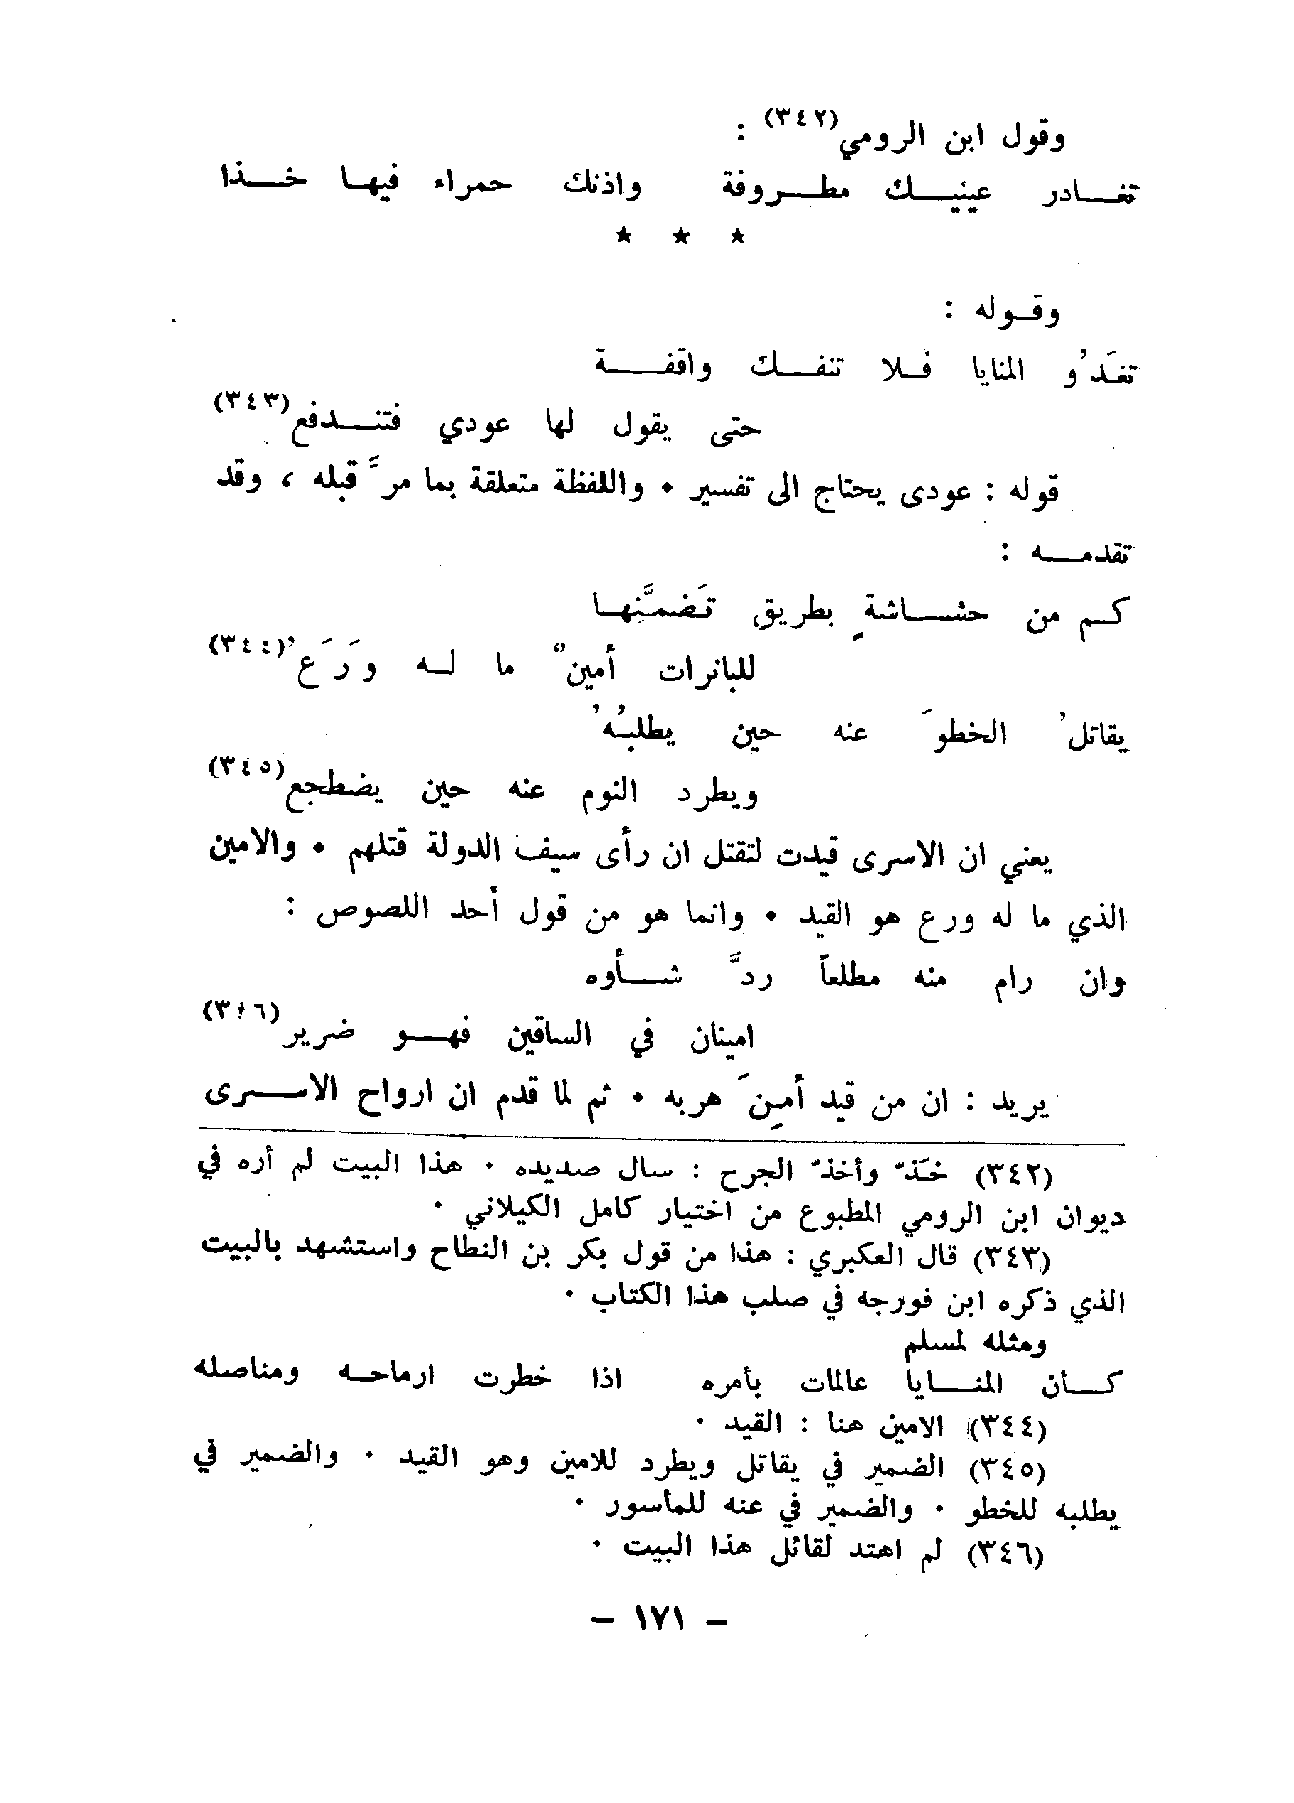 وقول ابن الرومي(٣٤٢) :
تغادر عينيك مطروفة واذنك حمراء فيها خذا
★ ★ ★
وقوله :
تغدُو المنايا فلا تنفك واقفة
حتى يقول لها عودي فتندفع(٣٤٣)
قوله : عودى يحتاج الى تفسير ٠ واللفظة متعلقة بما مرَّ قبله ، وقد
تقدمه :
كم من حشاشةٍ بطريق تَضمَّنها
للباترات أمينٌ ما له وَرَعُ(٣٤٤)
يقاتلُ الخطوَ عنه حين يطلبُهُ
ويطرد النوم عنه حين يضطجع(٣٤٥)
يعني ان الاسرى قيدت لتقتل ان رأى سيف الدولة قتلهم ٠ والامين
الذي ما له ورع هو القيد ٠ وانما هو من قول أحد اللصوص :
وان رام منه مطلعاً ردَّ شأوه
امينان في الساقين فهو ضرير(٣٤٦)
يريد : ان من قيد أمِنَ هربه ٠ ثم لما قدم ان ارواح الاسرى
(٣٤٢) خَذّ وأخذّ الجرح : سال صديده ٠ هذا البيت لم أره في
ديوان ابن الرومي المطبوع من اختيار كامل الكيلاني ٠
(٣٤٣) قال العكبري : هذا من قول بكر بن النطاح واستشهد بالبيت
الذي ذكره ابن فورجه في صلب هذا الكتاب ٠
ومثله لمسلم
كأن المنايا عالمات بأمره اذا خطرت ارماحه ومناصله
(٣٤٤) الامين هنا : القيد ٠
(٣٤٥) الضمير في يقاتل ويطرد للامين وهو القيد ٠ والضمير في
يطلبه للخطو ٠ والضمير في عنه للمأسور ٠
(٣٤٦) لم اهتد لقائل هذا البيت ٠
– ١٧١ –